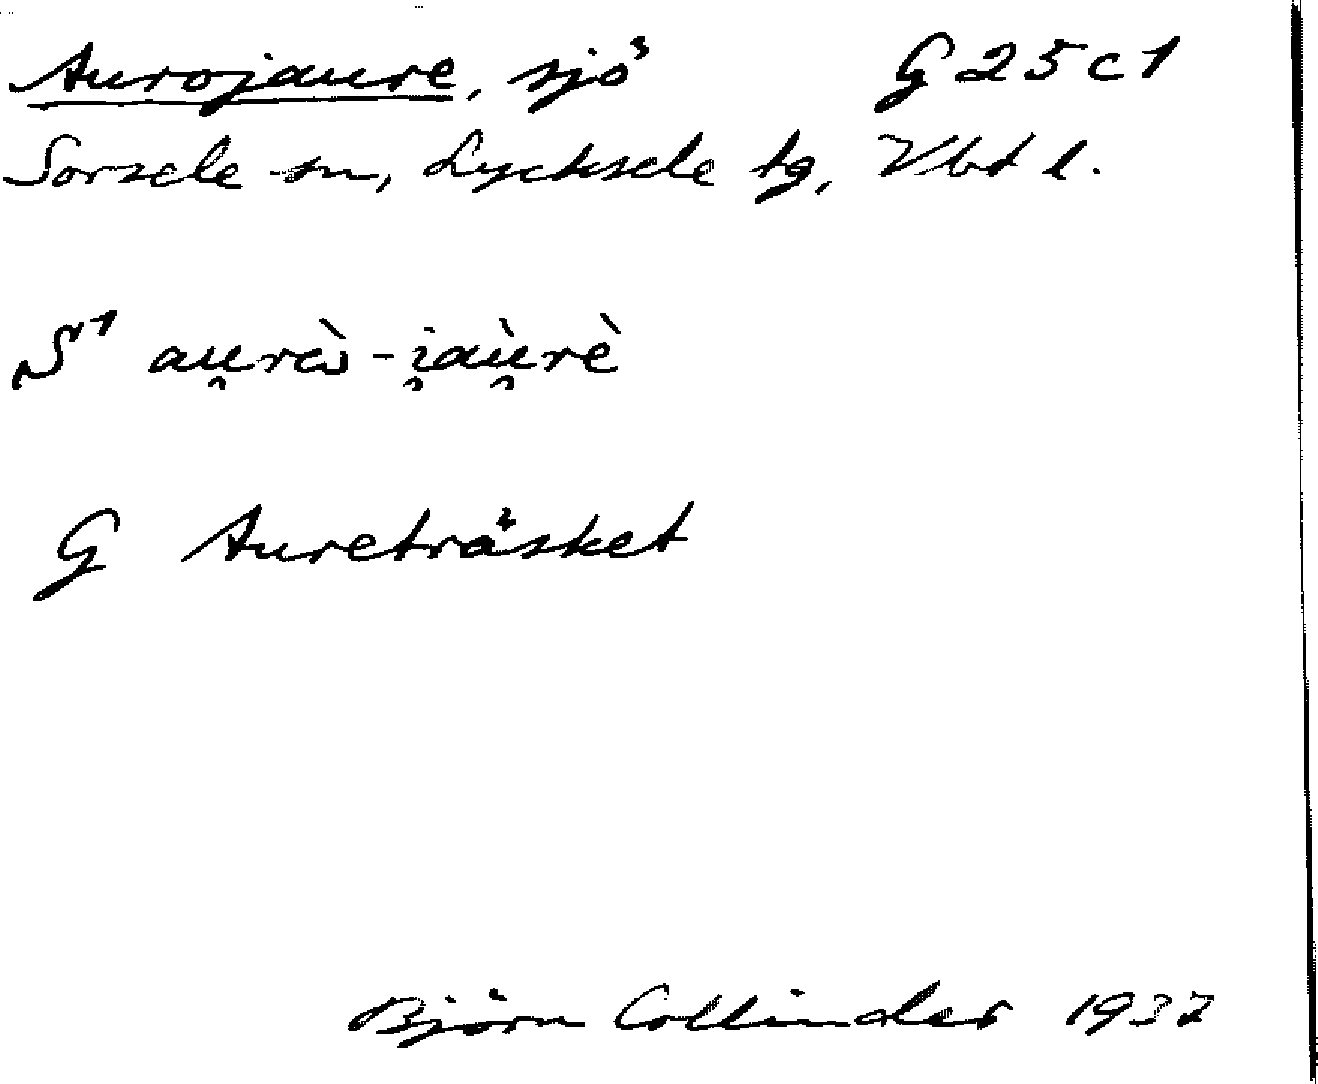 Aurojaure, sjö G 25 c 1
Sorsele sn, Lycksele tg, Vbt l.
S¹ au̯rɛ̀s-i̯aù̯rè
G Aureträsket
Björn Collinder 1937